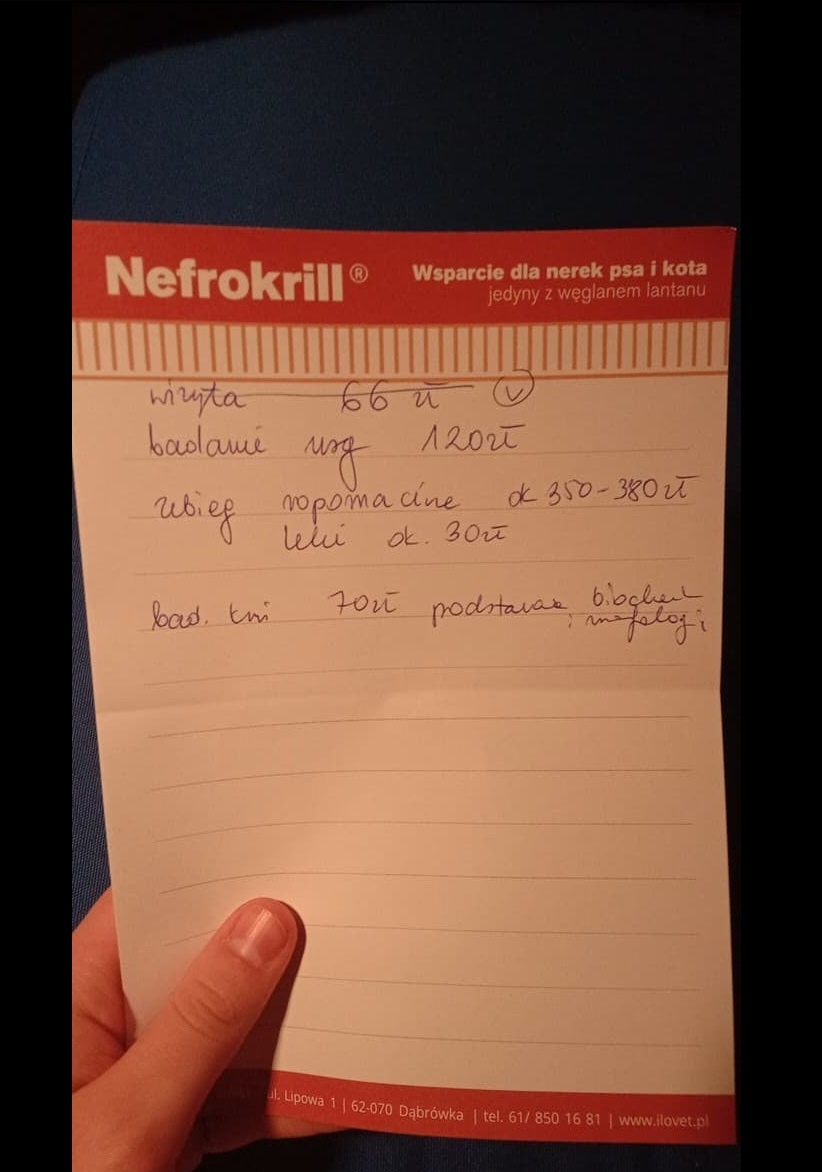 Nefrokrill®
Wsparcie dla nerek psa i kota
jedyny z węglanem lantanu
wizyta 66 zł v
badanie usg 120zł
zabieg ropomacicze ok 350-380zł
leki ok. 30zł
bad. krwi 70zł podstawowe biochem
i morfologi
ul. Lipowa 1 | 62-070 Dąbrówka | tel. 61/ 850 16 81 | www.ilovet.pl